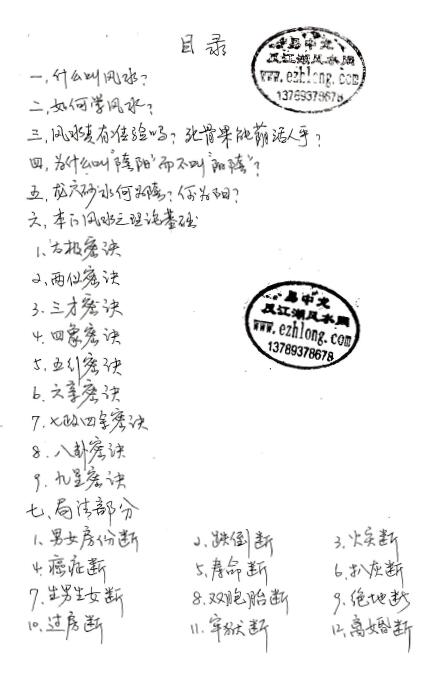 目录
易中龙
风江湖风水网
www.ezhlong.com
13769378678
一、什么叫风水?
二、如何学风水?
三、风水真有准验吗?死骨果能荫活人乎?
四、为什么叫"陰阳"而不叫"阳陰"?
五、龙穴砂水何为陰?何为阳?
六、本门风水之理论基础
1、太极密诀
2、两仪密诀
易中龙
风江湖风水网
www.ezhlong.com
13769378678
3、三才密诀
4、四象密诀
5、五行密诀
6、六亲密诀
7、七政四余密诀
8、八卦密诀
9、九星密诀
七、局法部分
1、男女房份断 2、跌倒断 3、火灾断
4、癌症断 5、寿命断 6、扒灰断
7、生男生女断 8、双胞胎断 9、绝地断
10、过房断 11、牢狱断 12、离婚断